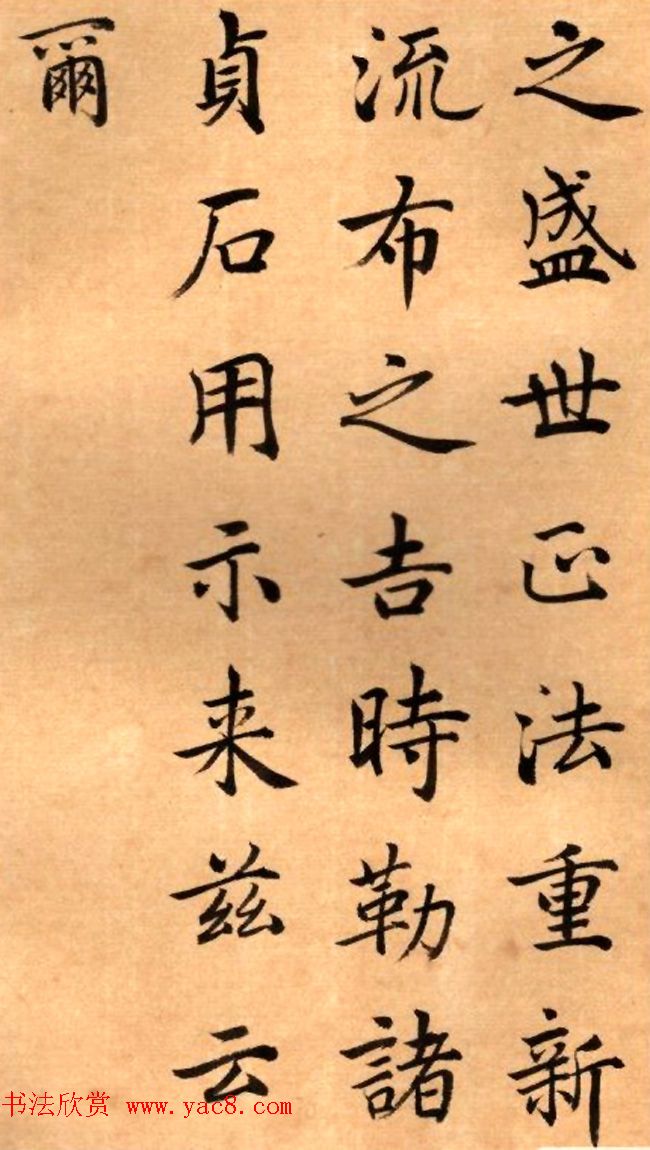 之盛世正法重新
流布之吉時勒諸
貞石用示来兹云
爾
书法欣赏 www.yac8.com